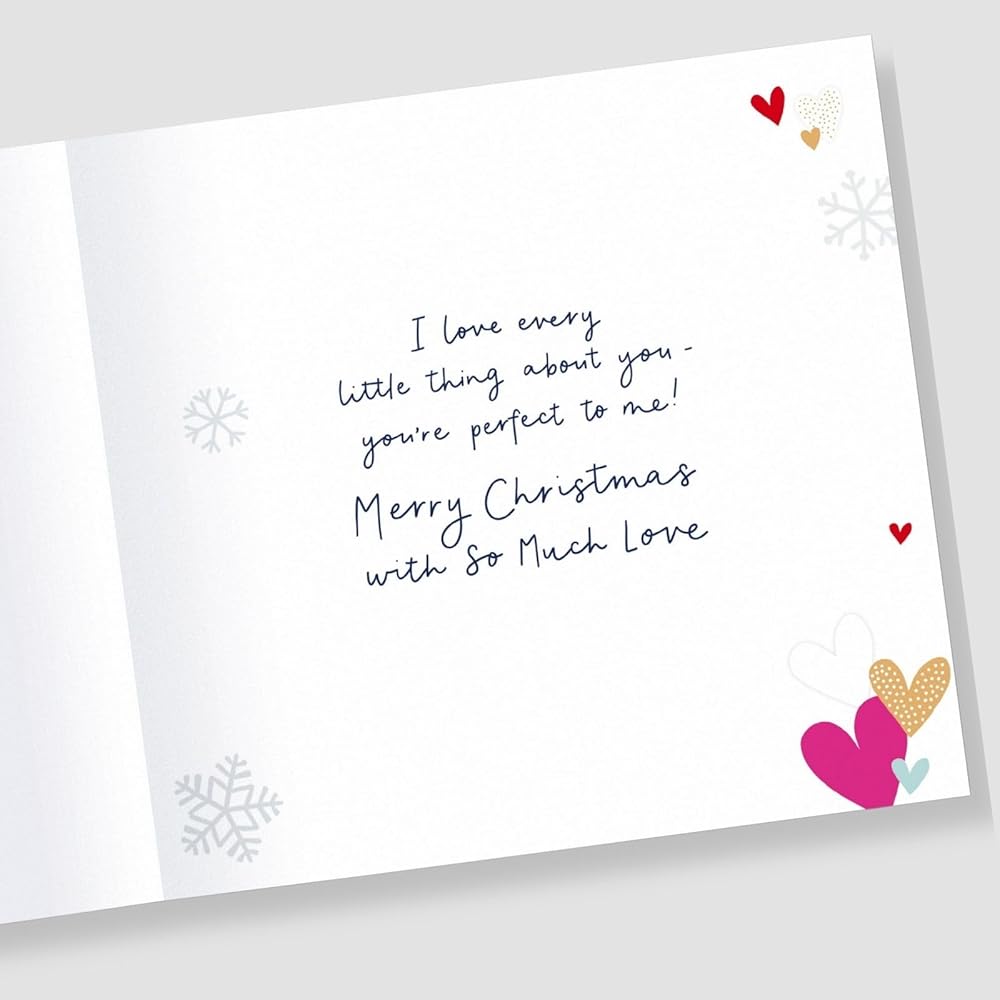 I love every
little thing about you -
you're perfect to me!
Merry Christmas
with So Much Love